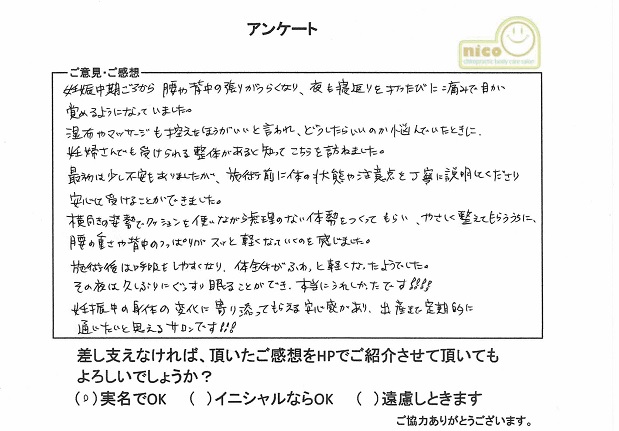 アンケート
nico
chiropractic body care salon
ご意見・ご感想
妊娠中期ごろから腰や背中の張りがつらくなり、夜も寝返りを打つたびに痛みで目が
覚めるようになっていました。
湿布やマッサージも控えたほうがいいと言われ、どうしたらいいのか悩んでいたときに、
妊婦さんでも受けられる整体があると知ってこちらを訪ねました。
最初は少し不安もありましたが、施術前に体の状態や注意点を丁寧に説明してくださり
安心して受けることができました。
横向きの姿勢でクッションを使いながら無理のない体勢をつくってもらい、やさしく整えてもらううちに、
腰の重さや背中のつっぱりがスッと軽くなっていくのを感じました。
施術後は呼吸もしやすくなり、体全体がふわっと軽くなったようでした。
その夜は久しぶりにぐっすり眠ることができ、本当にうれしかったです!!!!
妊娠中の身体の変化に寄り添ってもらえる安心感があり、出産まで定期的に
通いたいと思えるサロンです!!!
差し支えなければ、頂いたご感想をHPでご紹介させて頂いても
よろしいでしょうか？
(○)実名でOK ( )イニシャルならOK ( )遠慮しときます
ご協力ありがとうございます。